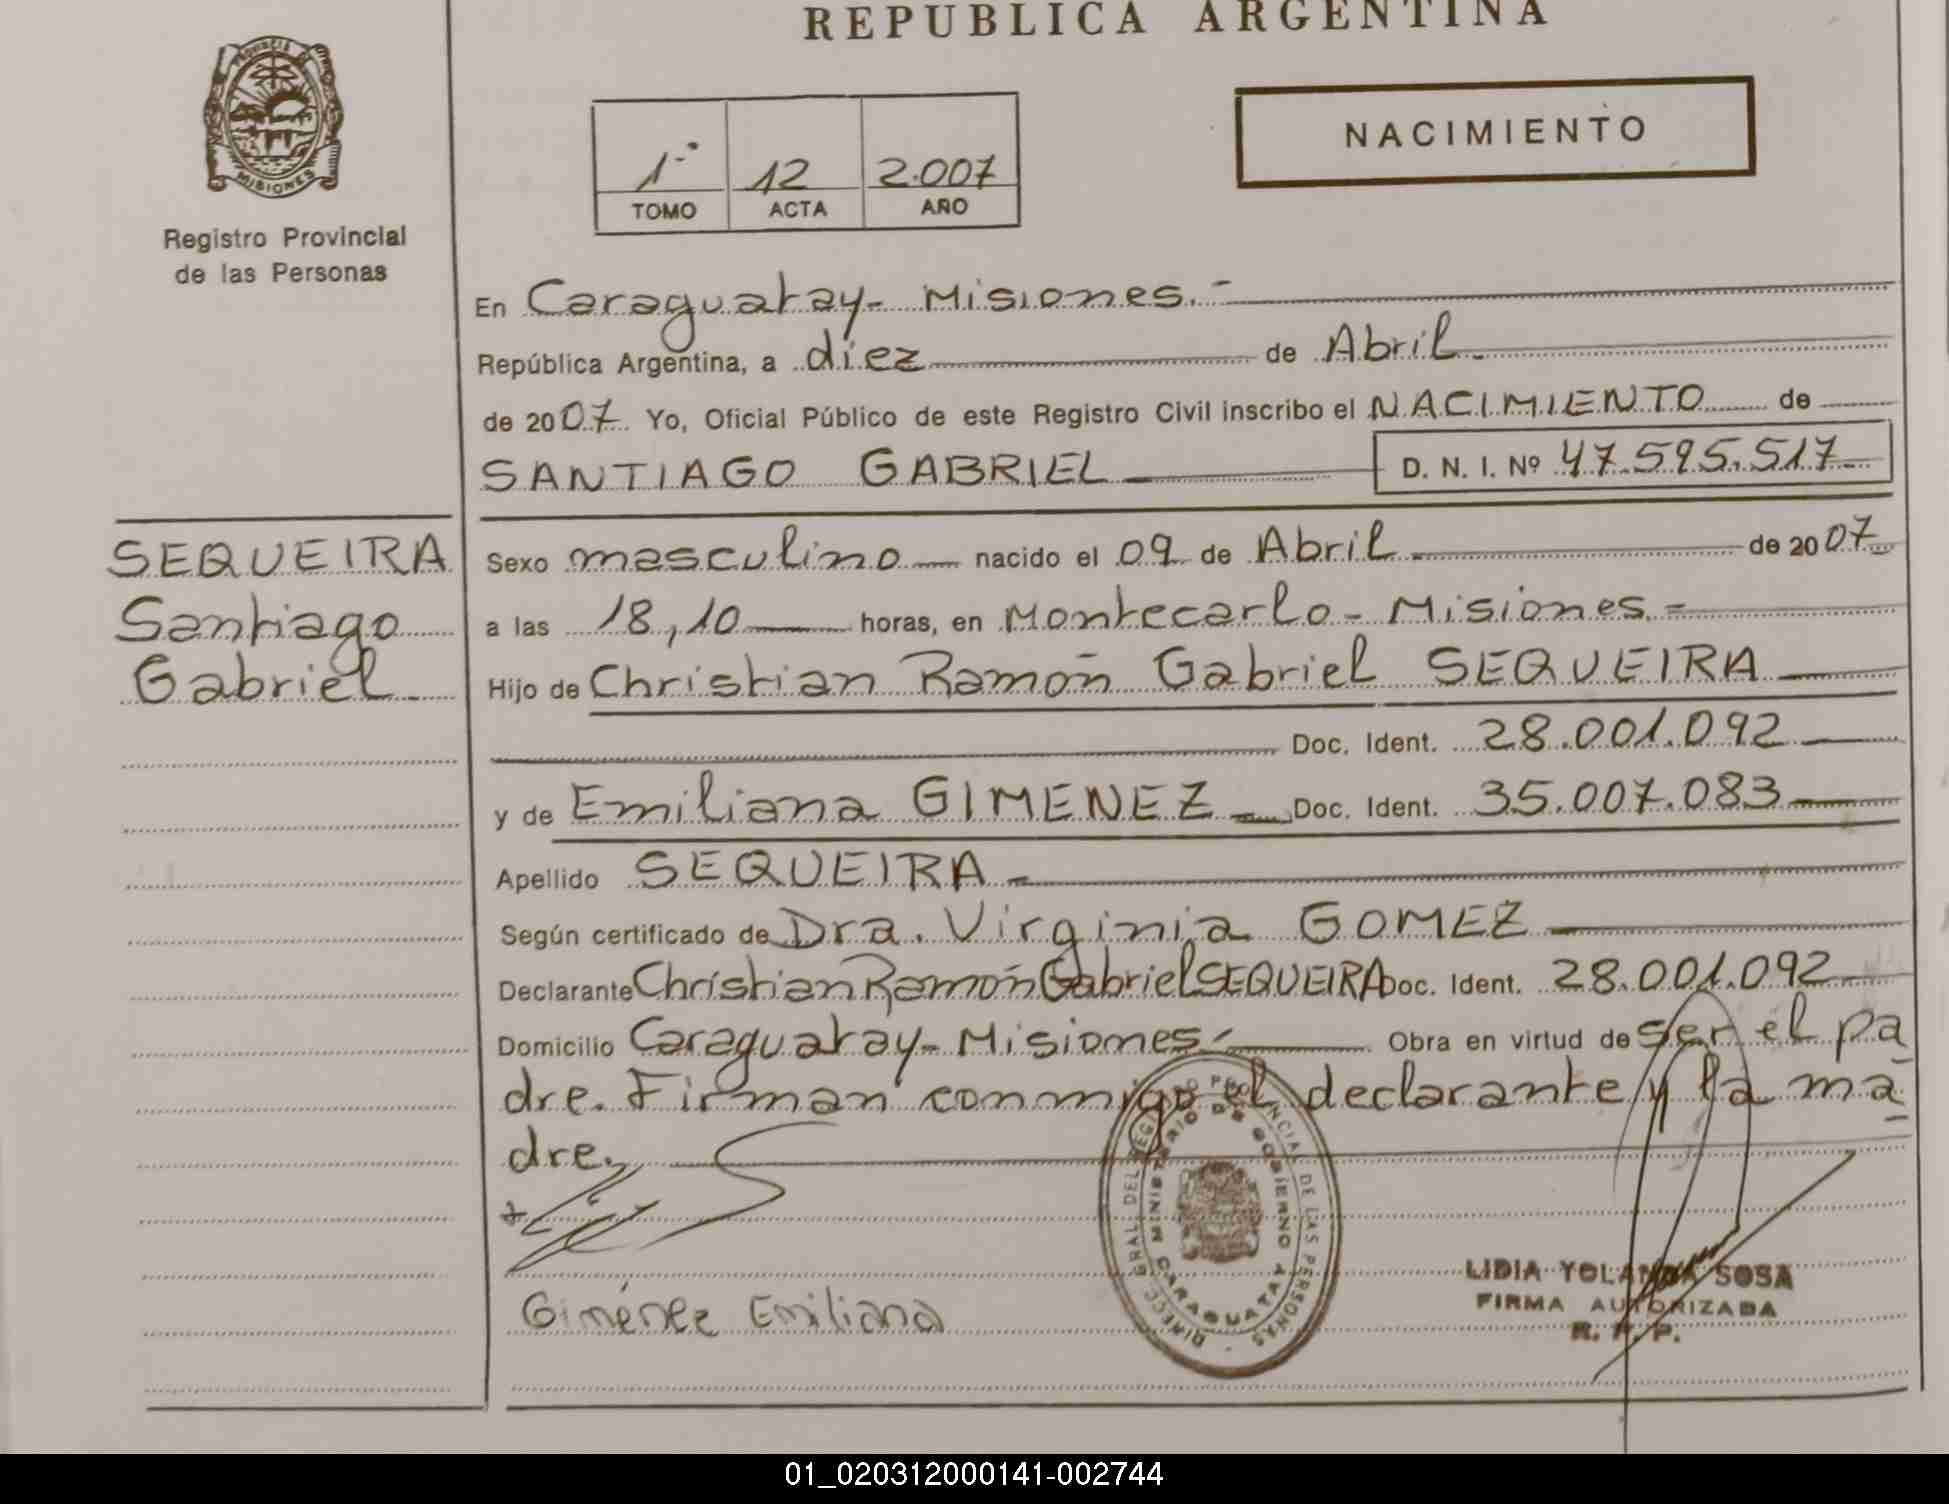 REPUBLICA ARGENTINA
PROVINCIA
MISIONES
Registro Provincial
de las Personas
1º 12 2.007
TOMO ACTA AÑO
NACIMIENTO
En Caraguatay - Misiones.-
República Argentina, a diez de Abril.
de 2007 Yo, Oficial Público de este Registro Civil inscribo el NACIMIENTO de
SANTIAGO GABRIEL D. N. I. Nº 47.595.517
SEQUEIRA
Santiago
Gabriel
Sexo masculino nacido el 09 de Abril de 2007
a las 18,10 horas, en Montecarlo - Misiones.-
Hijo de Christian Ramón Gabriel SEQUEIRA
Doc. Ident. 28.001.092
y de Emiliana GIMENEZ Doc. Ident. 35.007.083
Apellido SEQUEIRA
Según certificado de Dra. Virginia GOMEZ
Declarante Christian Ramón Gabriel SEQUEIRA Doc. Ident. 28.001.092
Domicilio Caraguatay - Misiones.- Obra en virtud de ser el pa
dre. Firman conmigo el declarante y la ma
dre.
Giménez Emiliana
DIRECC. GRAL DEL REGISTRO PROVINCIAL DE LAS PERSONAS
MINISTERIO DE GOBIERNO
CARAGUATAY
LIDIA YOLANDA SOSA
FIRMA AUTORIZADA
R. P. P.
01_020312000141-002744